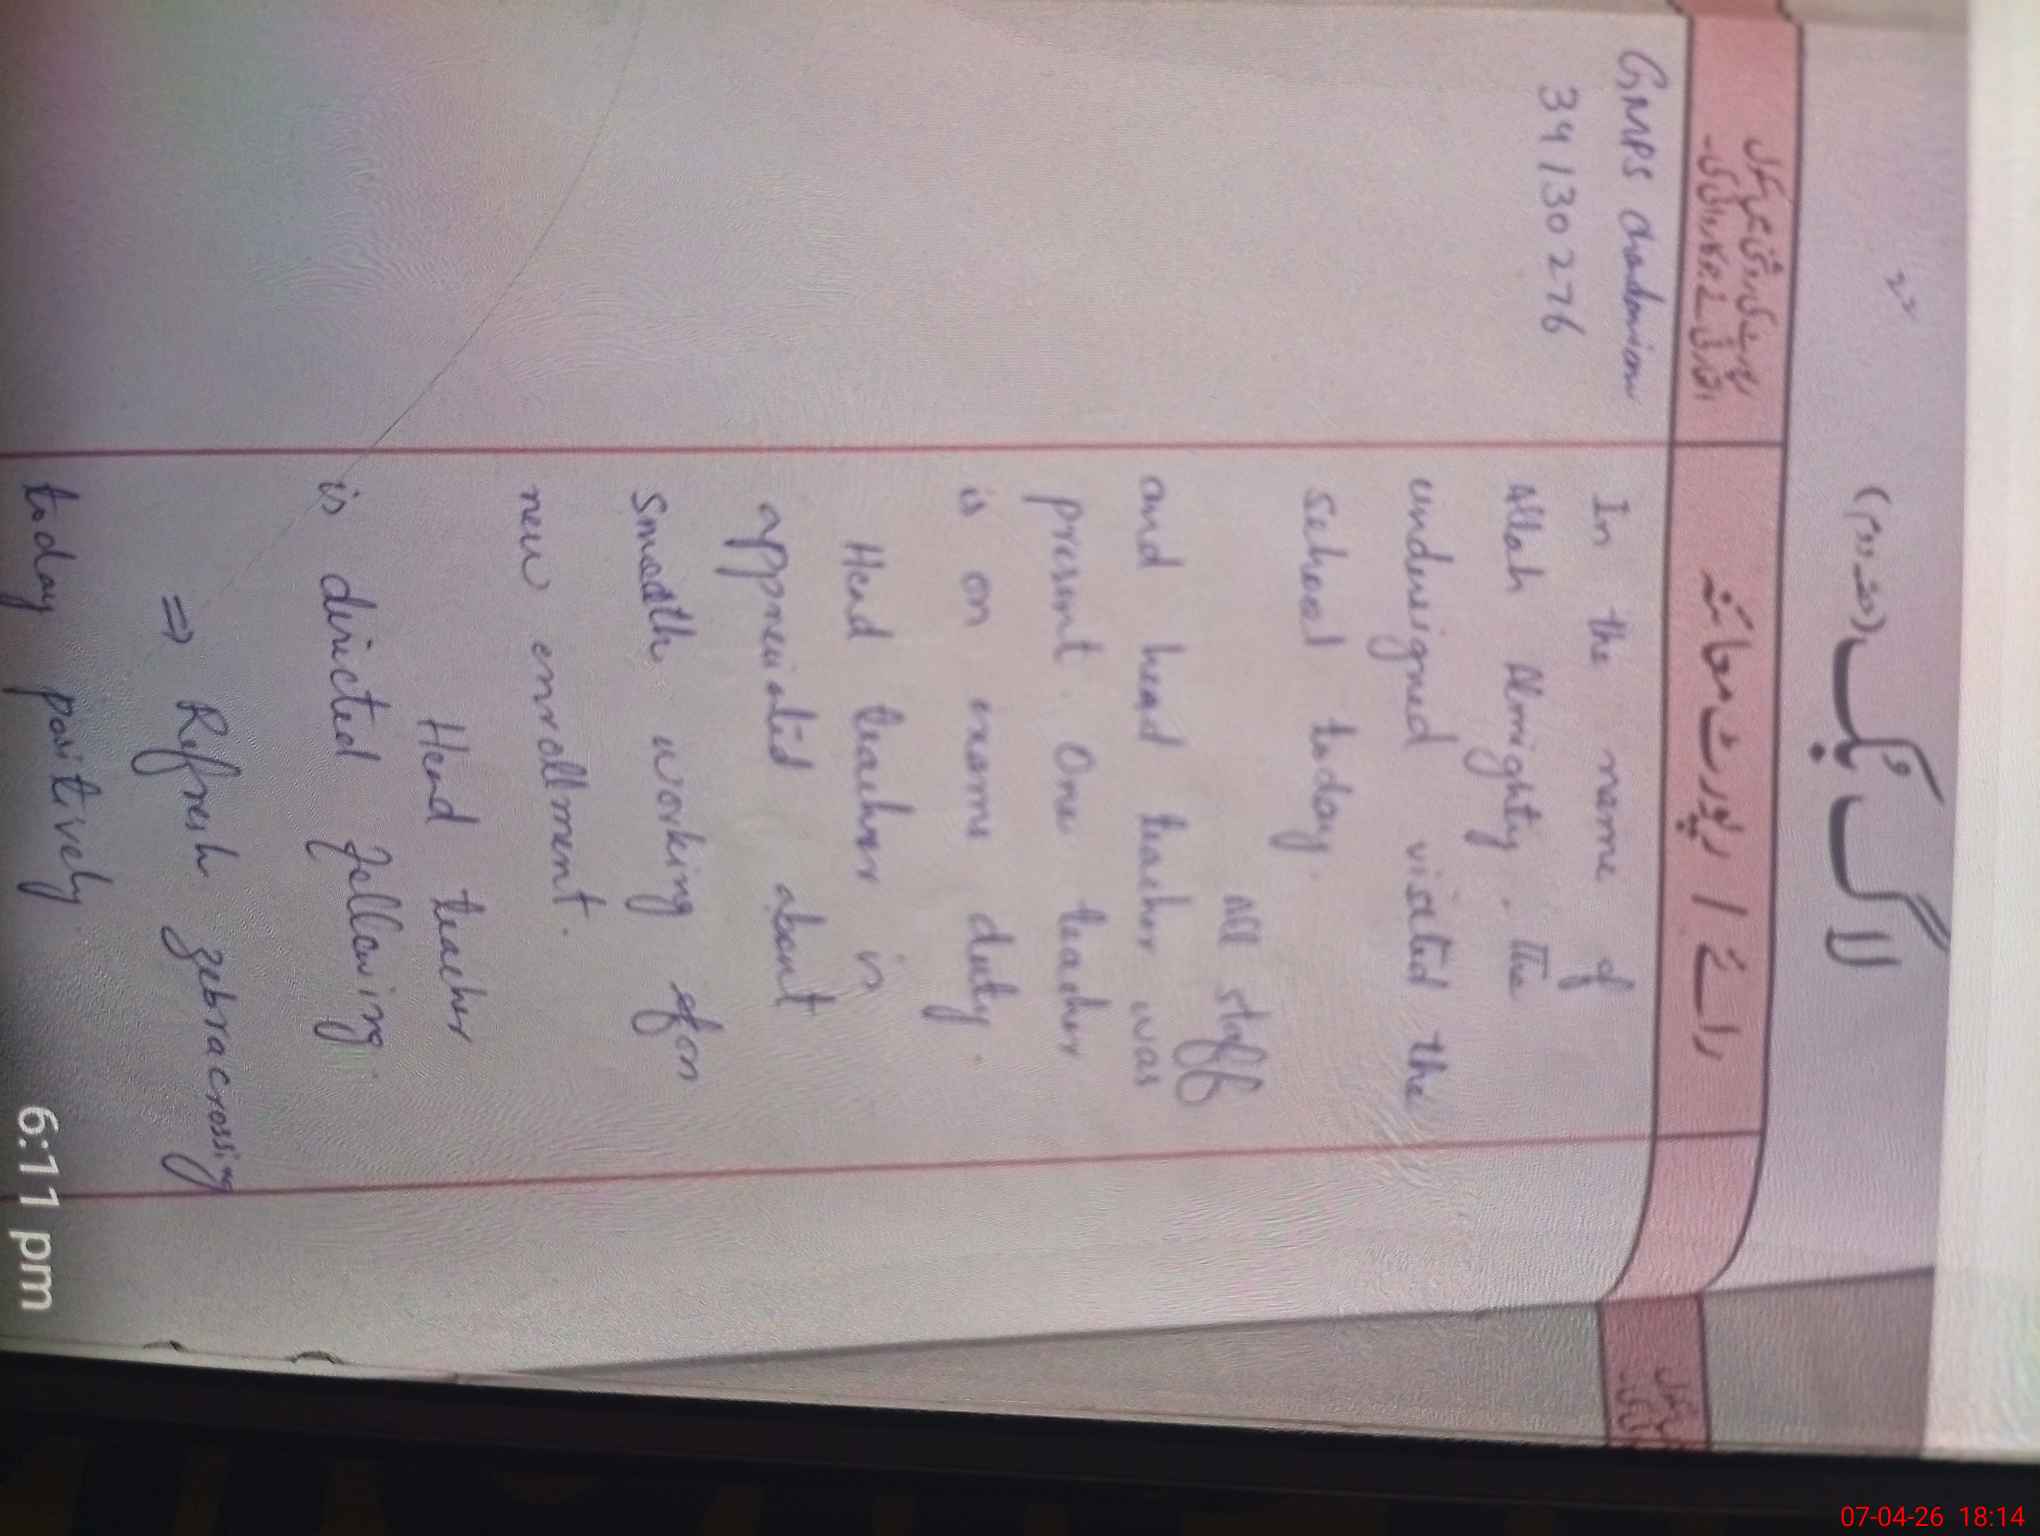 ۲۲
لاگ بک (حصہ دوم)
رائے / رپورٹ معائنہ
GMPS
39130276
In the name of
Allah Almighty. The
undersigned visited the
school today.
All staff
and head teacher was
present. One teacher
is on exams duty.
Head teacher is
appreciated about
smooth working on
new enrollment.
Head teacher
is directed following
⇒ Refresh zebracrossing
today positively
6:11 pm
07-04-26 18:14